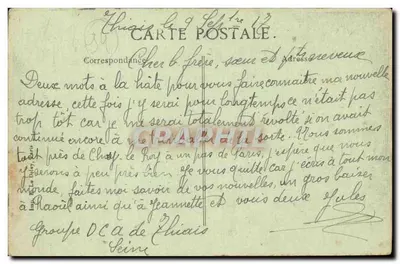 Thiais le 9 Sept
CARTE POSTALE
Correspondance Adresse
Cher b. frère, sœur et pts neveux
Deux mots à la hâte pour vous faire connaître ma nouvelle
adresse, cette fois j'y serai pour longtemps ce n'était pas
trop tôt car je me serai totalement révolté si on avait
continué encore à la sorte. Nous sommes
tout près de Choisy le Roy a un pas de Paris, j'espère que nous
y serons à peu près bien. Je vous quitte car j'écris à tout mon
monde, faites moi savoir de vos nouvelles, un gros baiser
à Raoûl ainsi qu'à Jeannette et vous deux Jules
Groupe DCA de Thiais
Seine